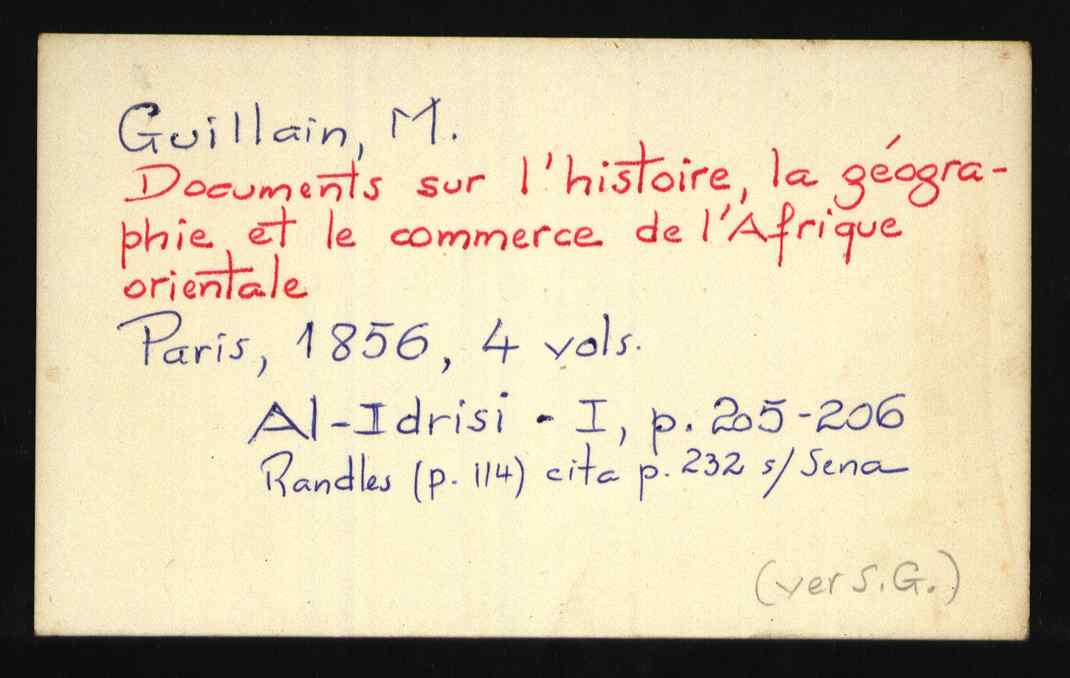 Guillain, M.
Documents sur l'histoire, la géogra-
phie, et le commerce de l'Afrique
orientale
Paris, 1856, 4 vols.
Al-Idrisi - I, p. 205-206
Randles (p. 114) cita p. 232 s/ Sena
(ver S.G.)